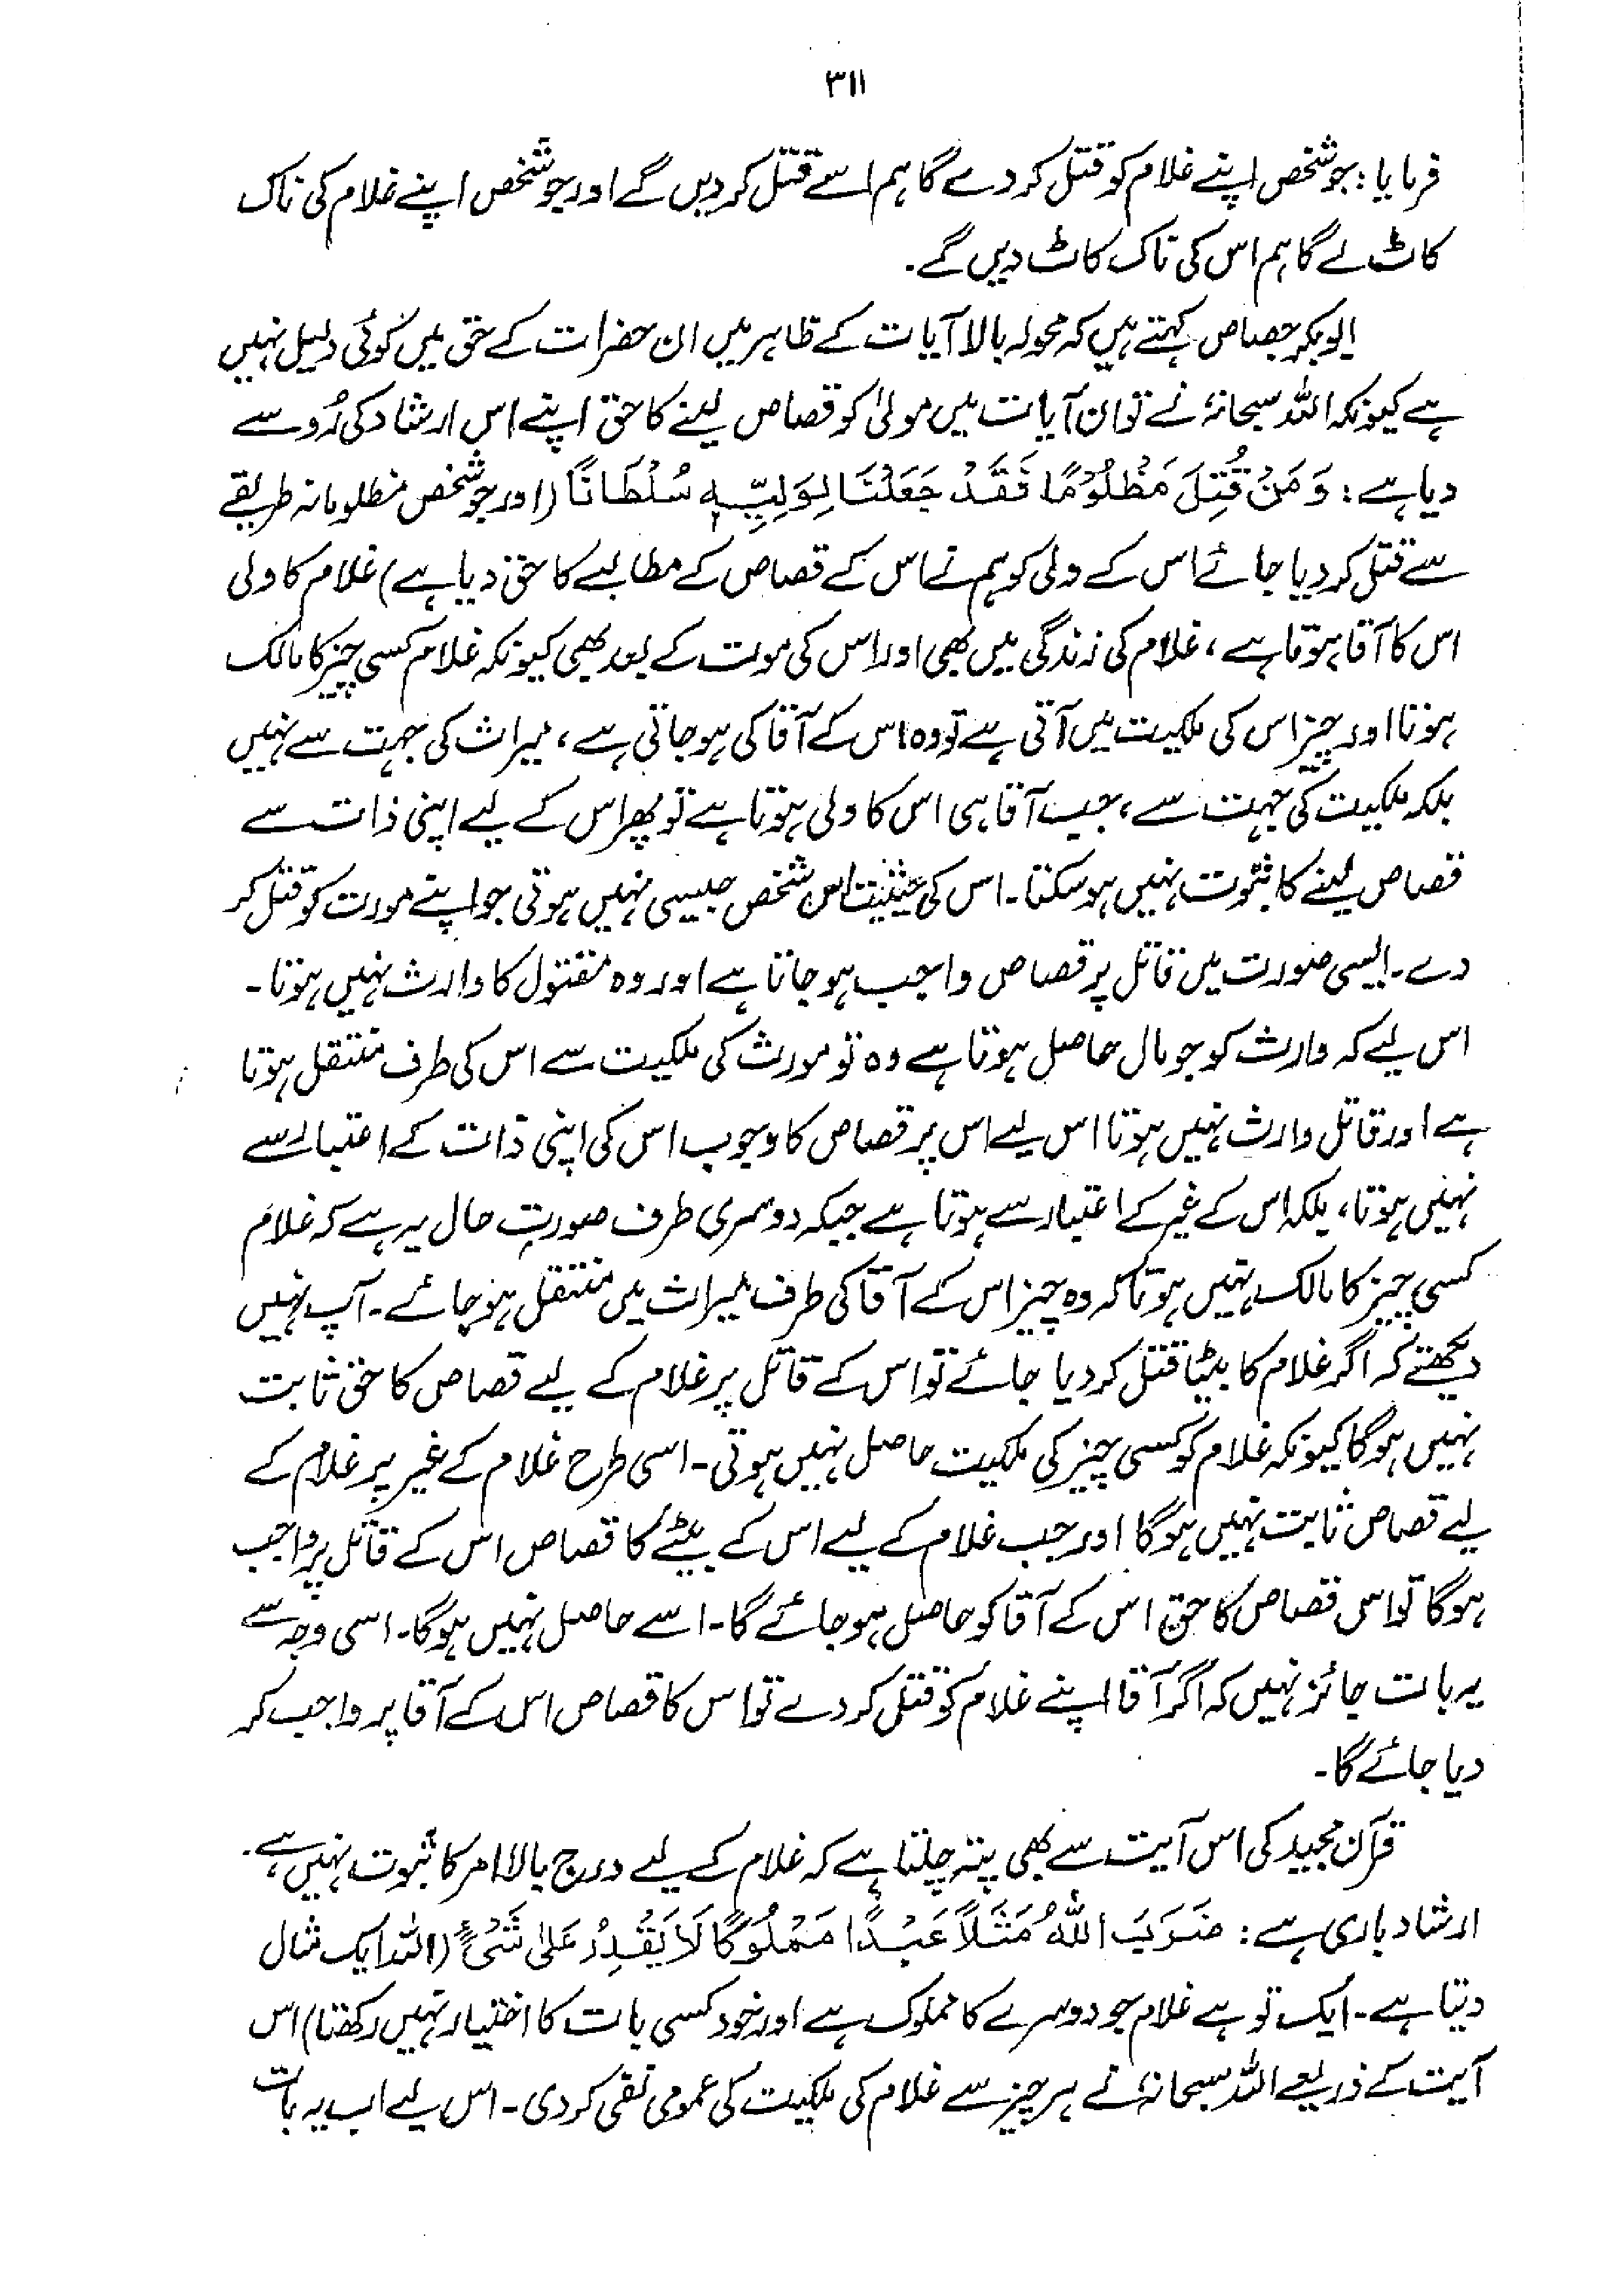 ۳۱۱
فرمایا: جو شخص اپنے غلام کو قتل کر دے گا ہم اسے قتل کر دیں گے اور جو شخص اپنے غلام کی ناک
کاٹ لے گا ہم اس کی ناک کاٹ دیں گے۔
ابو بکر جصاص کہتے ہیں کہ محولہ بالا آیات کے ظاہر میں ان حضرات کے حق میں کوئی دلیل نہیں
ہے کیونکہ اللہ سبحانہٗ نے تو ان آیات میں مولیٰ کو قصاص لینے کا حق اپنے اس ارشاد کی رُو سے
دیا ہے: وَ مَنْ قُتِلَ مَظْلُوْمًا فَقَدْ جَعَلْنَا لِوَلِیِّہٖ سُلْطَانًا (اور جو شخص مظلومانہ طریقے
سے قتل کر دیا جائے اس کے ولی کو ہم نے اس کے قصاص کے مطالبے کا حق دیا ہے) غلام کا ولی
اس کا آقا ہوتا ہے، غلام کی زندگی میں بھی اور اس کی موت کے بعد بھی کیونکہ غلام کسی چیز کا مالک
ہوتا اور چیز اس کی ملکیت میں آتی ہے تو وہ اس کے آقا کی ہو جاتی ہے، میراث کی جہت سے نہیں
بلکہ ملکیت کی جہت سے، جب آقا ہی اس کا ولی ہوتا ہے تو پھر اس کے لیے اپنی ذات سے
قصاص لینے کا ثبوت نہیں ہو سکتا۔ اس کی حیثیت اس شخص جیسی نہیں ہوتی جو اپنے مورث کو قتل کر
دے۔ ایسی صورت میں قاتل پر قصاص واجب ہو جاتا ہے اور وہ مقتول کا وارث نہیں ہوتا۔
اس لیے کہ وارث کو جو مال حاصل ہوتا ہے وہ تو مورث کی ملکیت سے اس کی طرف منتقل ہوتا
ہے اور قاتل وارث نہیں ہوتا اس لیے اس پر قصاص کا وجوب اس کی اپنی ذات کے اعتبار سے
نہیں ہوتا، بلکہ اس کے غیر کے اعتبار سے ہوتا ہے جبکہ دوسری طرف صورتِ حال یہ ہے کہ غلام
کسی چیز کا مالک نہیں ہوتا کہ وہ چیز اس کے آقا کی طرف میراث میں منتقل ہو جائے۔ آپ نہیں
دیکھتے کہ اگر غلام کا بیٹا قتل کر دیا جائے تو اس کے قاتل پر غلام کے لیے قصاص کا حق ثابت
نہیں ہوگا کیونکہ غلام کو کسی چیز کی ملکیت حاصل نہیں ہوتی۔ اسی طرح غلام کے غیر پر غلام کے
لیے قصاص ثابت نہیں ہوگا اور جب غلام کے لیے اس کے بیٹے کا قصاص اس کے قاتل پر واجب
ہوگا تو اس قصاص کا حق اس کے آقا کو حاصل ہو جائے گا۔ اسے حاصل نہیں ہوگا۔ اسی وجہ سے
یہ بات جائز نہیں کہ اگر آقا اپنے غلام کو قتل کر دے تو اس کا قصاص اس کے آقا پر واجب کر
دیا جائے گا۔
قرآن مجید کی اس آیت سے بھی پتہ چلتا ہے کہ غلام کے لیے درج بالا امر کا ثبوت نہیں ہے۔
ارشاد باری ہے: ضَرَبَ اللّٰہُ مَثَلًا عَبْدًا مَمْلُوْکًا لَا یَقْدِرُ عَلٰی شَیْءٍ (اللہ ایک مثال
دیتا ہے۔ ایک تو ہے غلام جو دوسرے کا مملوک ہے اور خود کسی بات کا اختیار نہیں رکھتا) اس
آیت کے ذریعے اللہ سبحانہٗ نے ہر چیز سے غلام کی ملکیت کی عمومی نفی کر دی۔ اس لیے اب یہ بات